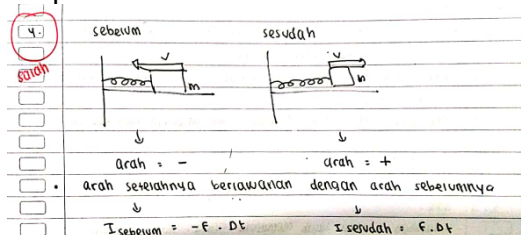 4. sebelum sesudah
salah
v v
m m
↓ ↓
arah = - arah = +
• arah setelahnya berlawanan dengan arah sebelumnya
↓ ↓
I sebelum = -F . Dt I sesudah = F. Dt